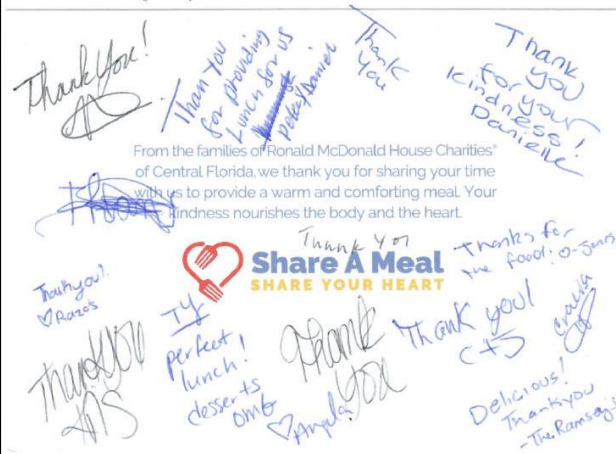 Thank You!
Than You
for providing
Lunch for us
Peter/Daniel
Thank
You
Thank
you
for your
kindness!
Danielle
From the families of Ronald McDonald House Charities®
of Central Florida, we thank you for sharing your time
with us to provide a warm and comforting meal. Your
kindness nourishes the body and the heart.
Thank You
Share A Meal
SHARE YOUR HEART
Thanks for
the food! O-Jones
Thank you!
♡ Razos
TY
perfect
lunch!
desserts
OMG
Thank
You
♡ Angela
Thank you!
C+S
Thank you
Delicious!
Thankyou
-The Ramsay's